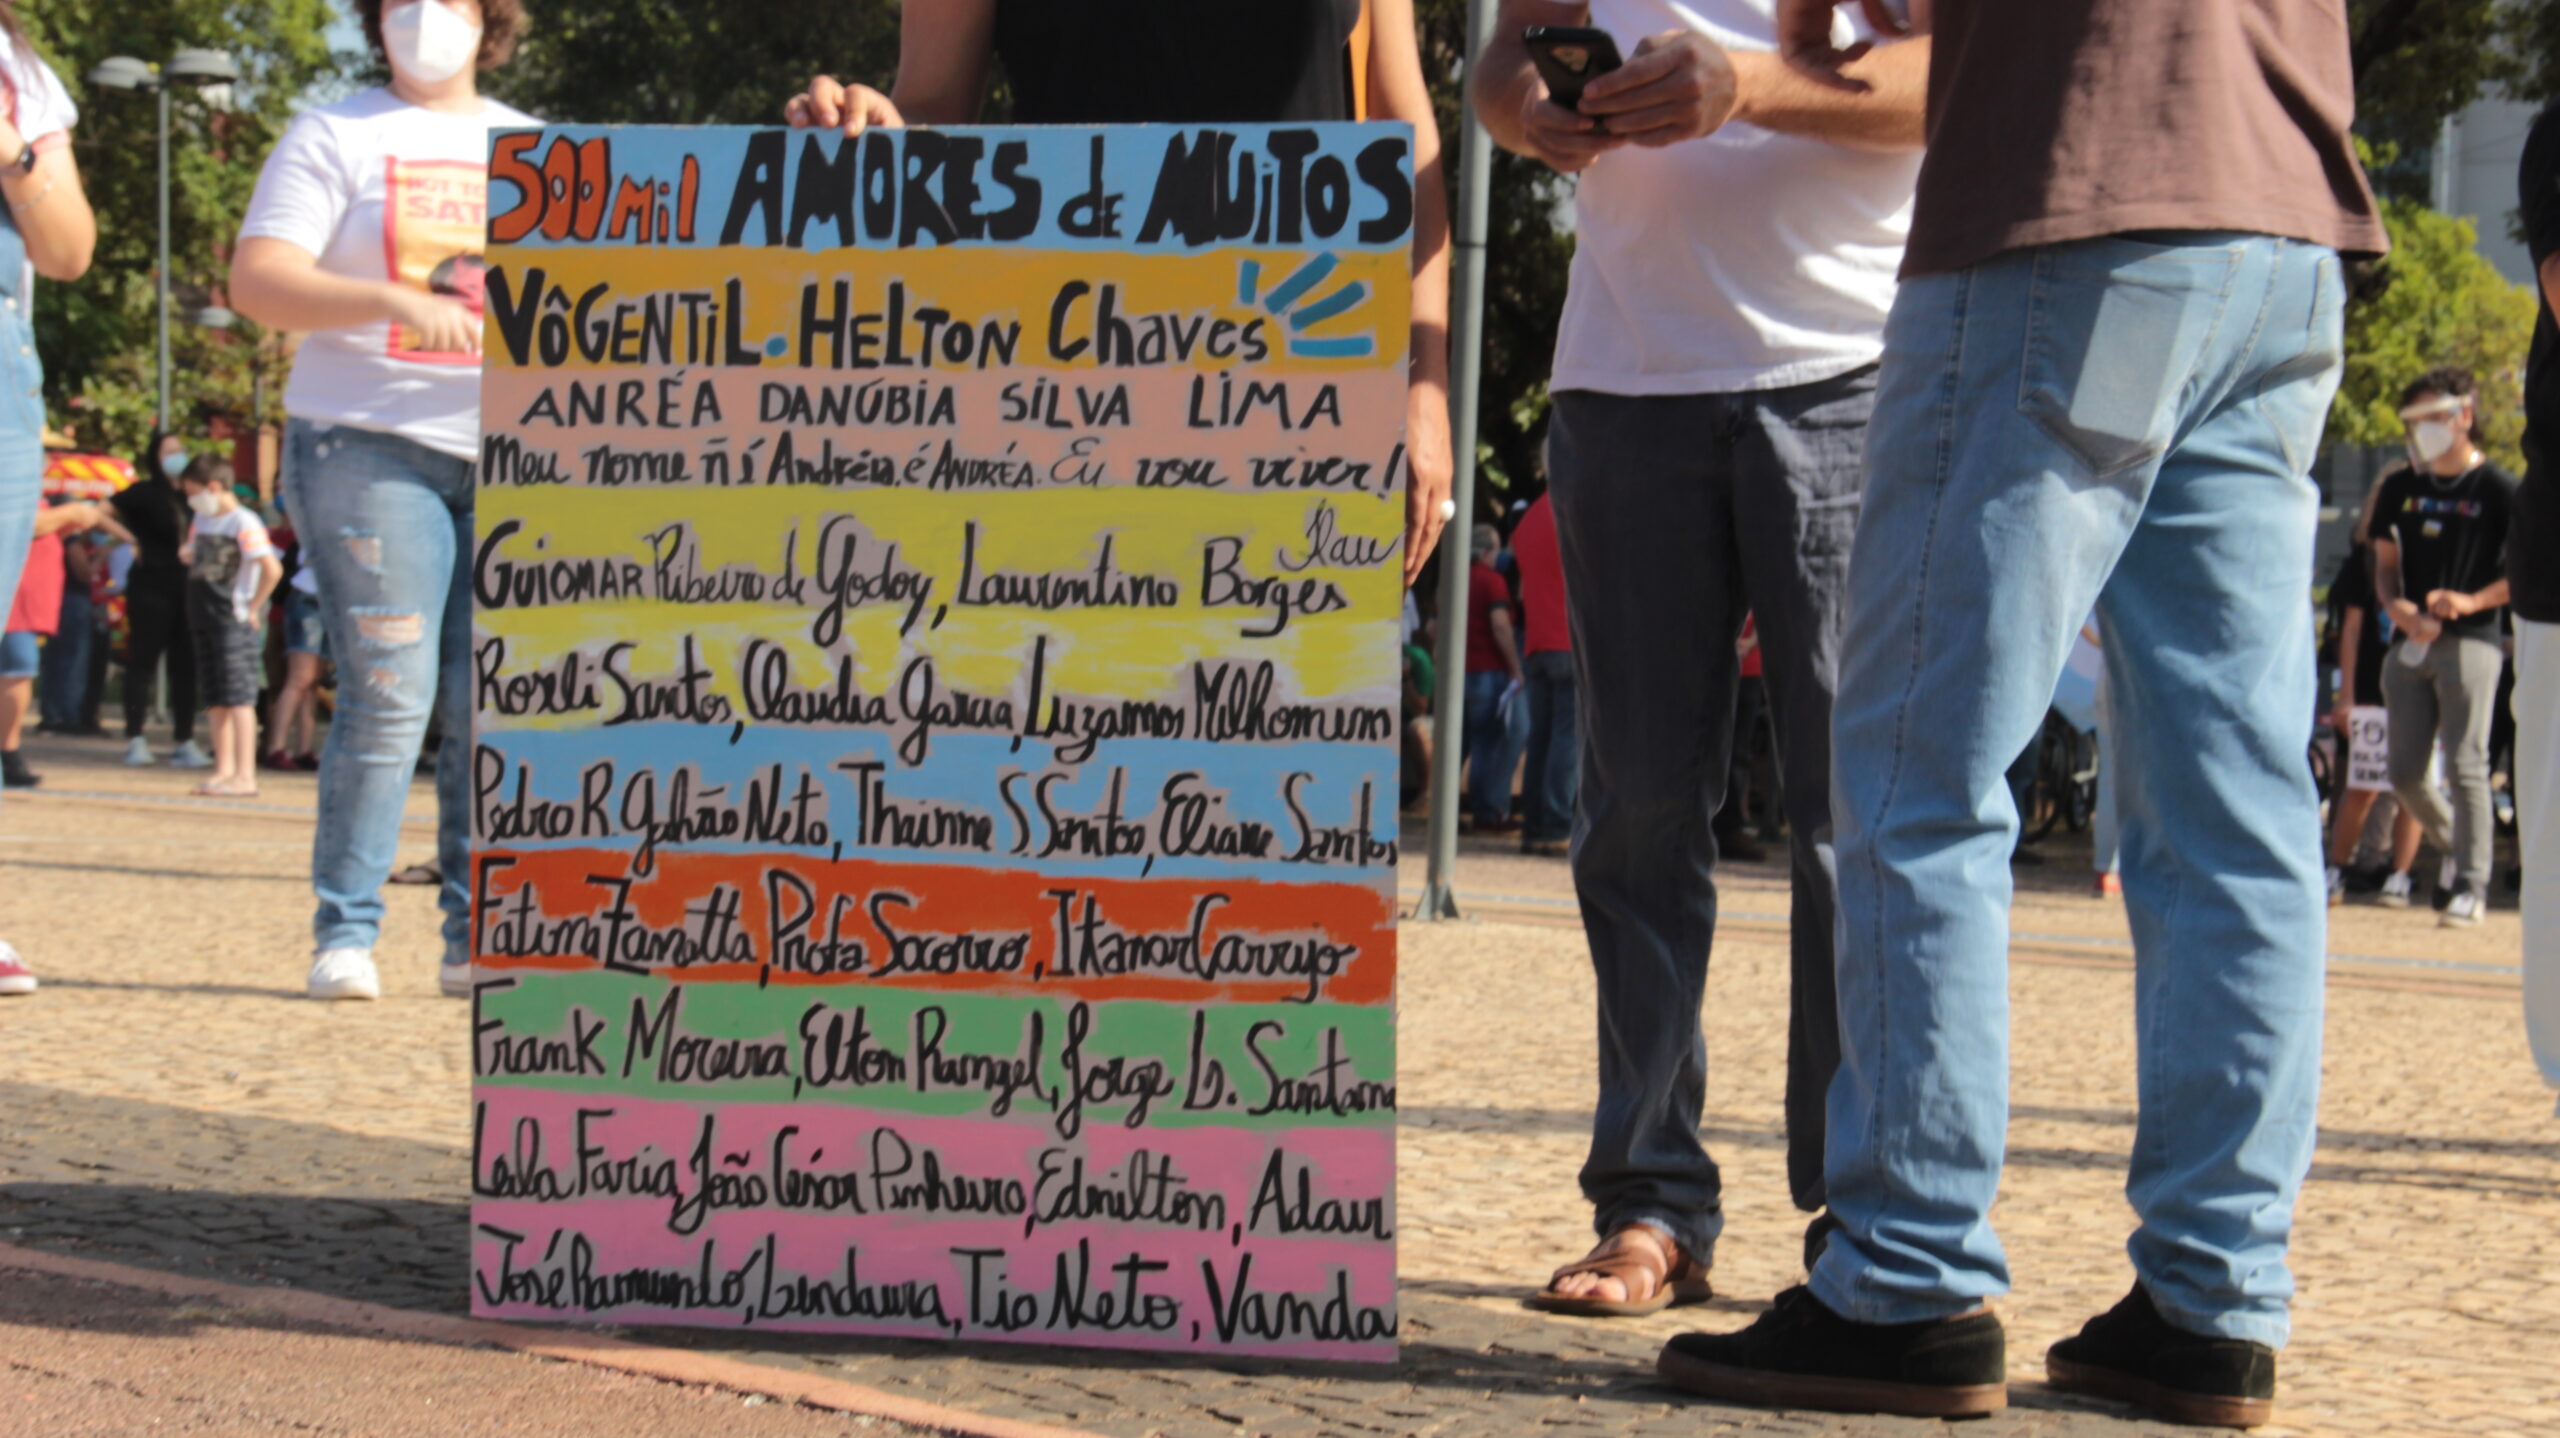 500 Mil AMORES de MUITOS
VÔ GENTIL. HELTON Chaves
ANRÉA DANÚBIA SILVA LIMA
Meu nome ñ é Andréia, é ANDRÉA. Eu vou viver!
Ilau
GUIOMAR Ribeiro de Godoy, Laurentino Borges
Roseli Santos, Claudia Garcia, Luzamor Milhomem
Pedro R. Galvão Neto, Thainne S. Santos, Eliane Santos
Fatima Zanatta, Profa. Socorro, Itamar Carryo
Frank Moreira, Elton Rangel, Jorge L. Santana
Leila Faria, João César Pinheiro, Ednilton, Adair
José Raimundo, Lindaura, Tio Neto, Vanda